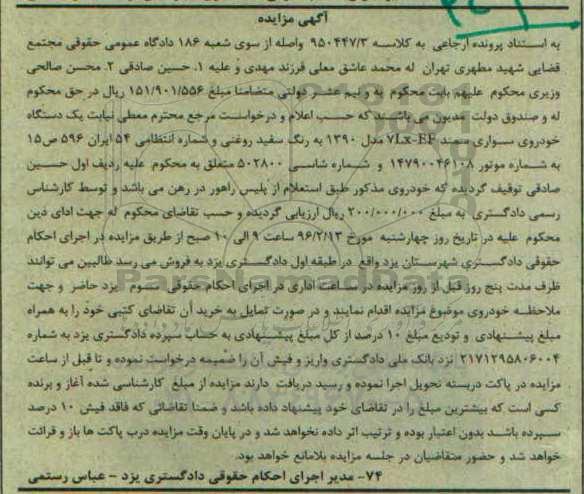 آگهی مزایده
به استناد پرونده ارجاعی به کلاسه ۹۵۰۴۴۷/۳ واصله از سوی شعبه ۱۸۶ دادگاه عمومی حقوقی مجتمع
قضایی شهید مطهری تهران له محمد عاشق معلی فرزند مهدی و علیه ۱. حسین صادقی ۲. محسن صالحی
وزیری محکوم علیهم بابت محکوم به و نیم عشر دولتی متضامنا مبلغ ۱۵۱/۹۰۱/۵۵۶ ریال در حق محکوم
له و صندوق دولت مدیون می باشند که حسب اعلام و درخواست مرجع محترم معطی نیابت یک دستگاه
خودروی سواری سمند ۷Lx-EF مدل ۱۳۹۰ به رنگ سفید روغنی و شماره انتظامی ۵۴ ایران ۵۹۶ ص۱۵
به شماره موتور ۱۴۷۹۰۰۴۶۱۰۸ و شماره شاسی ۵۰۲۸۰۰ متعلق به محکوم علیه ردیف اول حسین
صادقی توقیف گردیده که خودروی مذکور طبق استعلام از پلیس راهور در رهن می باشد و توسط کارشناس
رسمی دادگستری به مبلغ ۲۰۰/۰۰۰/۰۰۰ ریال ارزیابی گردیده و حسب تقاضای محکوم له جهت ادای دین
محکوم علیه در تاریخ روز چهارشنبه مورخ ۹۶/۲/۱۳ ساعت ۹ الی ۱۰ صبح از طریق مزایده در اجرای احکام
حقوقی دادگستری شهرستان یزد واقع در طبقه اول دادگستری یزد به فروش می رسد طالبین می توانند
ظرف مدت پنج روز قبل از روز مزایده در ساعات اداری در اجرای احکام حقوقی سوم یزد حاضر و جهت
ملاحظه خودروی موضوع مزایده اقدام نمایند و در صورت تمایل به خرید آن تقاضای کتبی خود را به همراه
مبلغ پیشنهادی و تودیع مبلغ ۱۰ درصد از کل مبلغ پیشنهادی به حساب سپرده دادگستری یزد به شماره
۲۱۷۱۲۹۵۸۰۶۰۰۴ نزد بانک ملی دادگستری واریز و فیش آن را ضمیمه درخواست نموده و تا قبل از ساعت
مزایده در پاکت دربسته تحویل اجرا نموده و رسید دریافت دارند مزایده از مبلغ کارشناسی شده آغاز و برنده
کسی است که بیشترین مبلغ را در تقاضای خود پیشنهاد داده باشد و ضمنا تقاضائی که فاقد فیش ۱۰ درصد
سپرده باشد بدون اعتبار بوده و ترتیب اثر داده نخواهد شد و در پایان وقت مزایده درب پاکت ها باز و قرائت
خواهد شد و حضور متقاضیان در جلسه مزایده بلامانع خواهد بود.
۷۴- مدیر اجرای احکام حقوقی دادگستری یزد - عباس رستمی
ParsNamadData